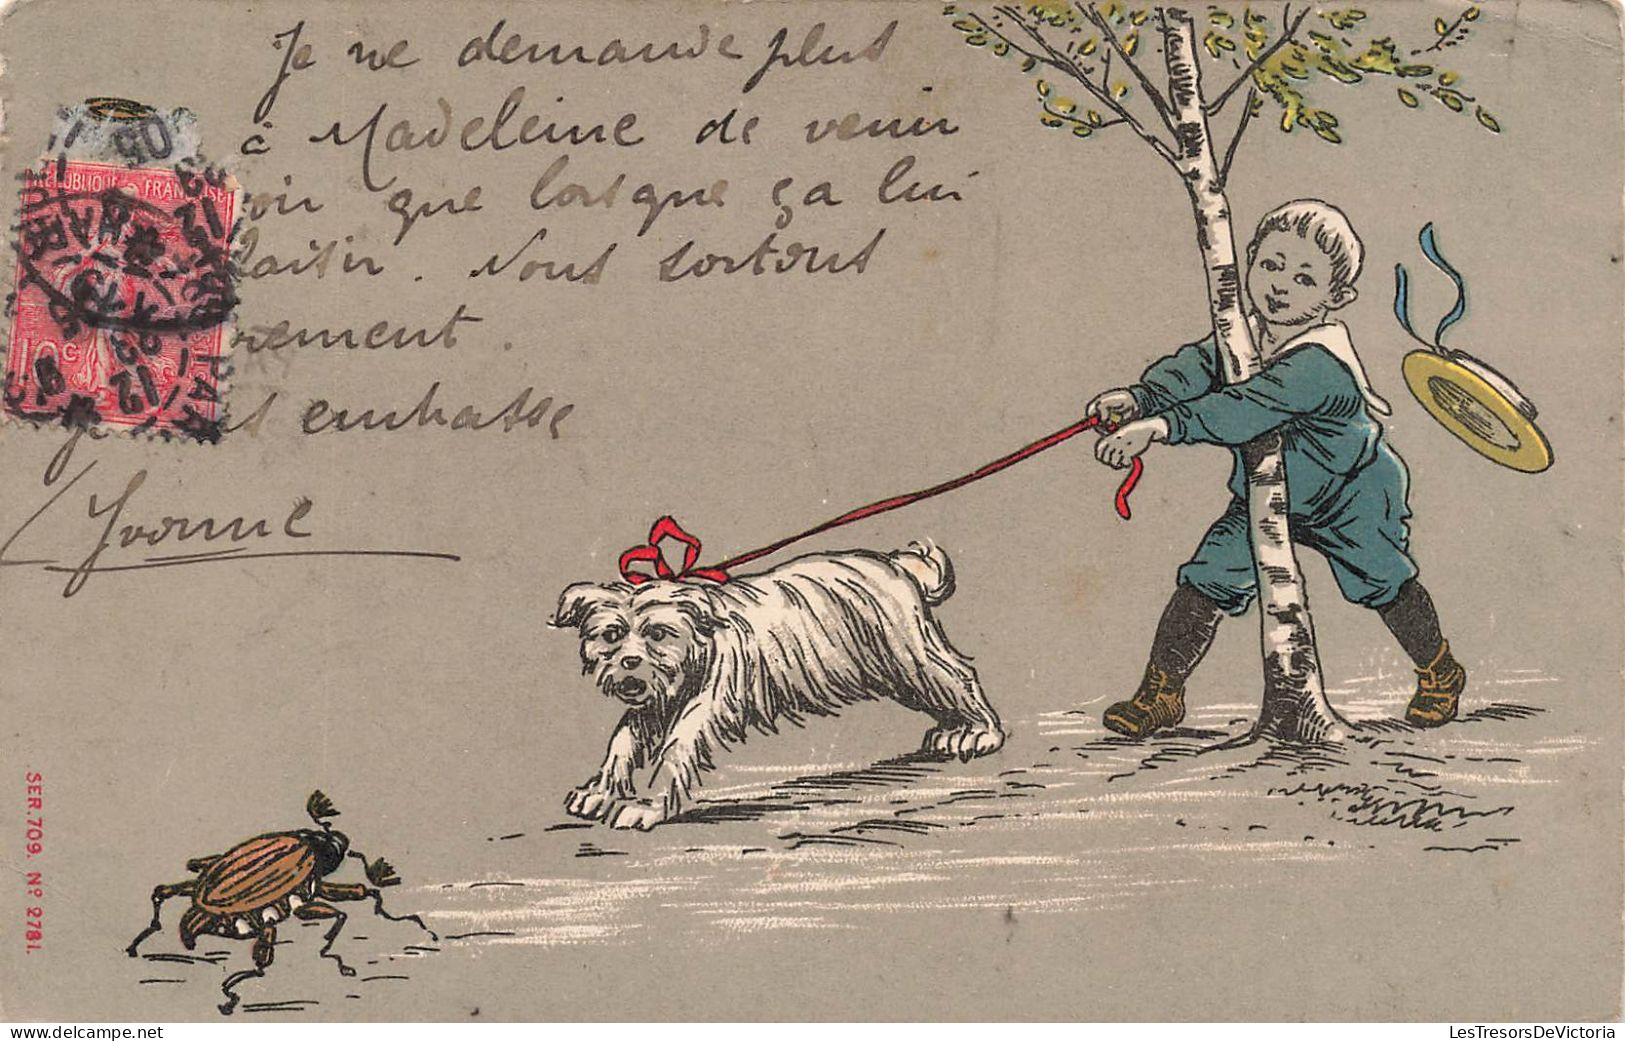 Je ne demande plus
à Madeleine de venir
voir que lorsque ça lui
plaisir. Nous sortons
rement.
embrasse
Yvonne
REPUBLIQUE FRANCAISE
10c
SER. 709. Nº 2781.
LesTresorsDeVictoria